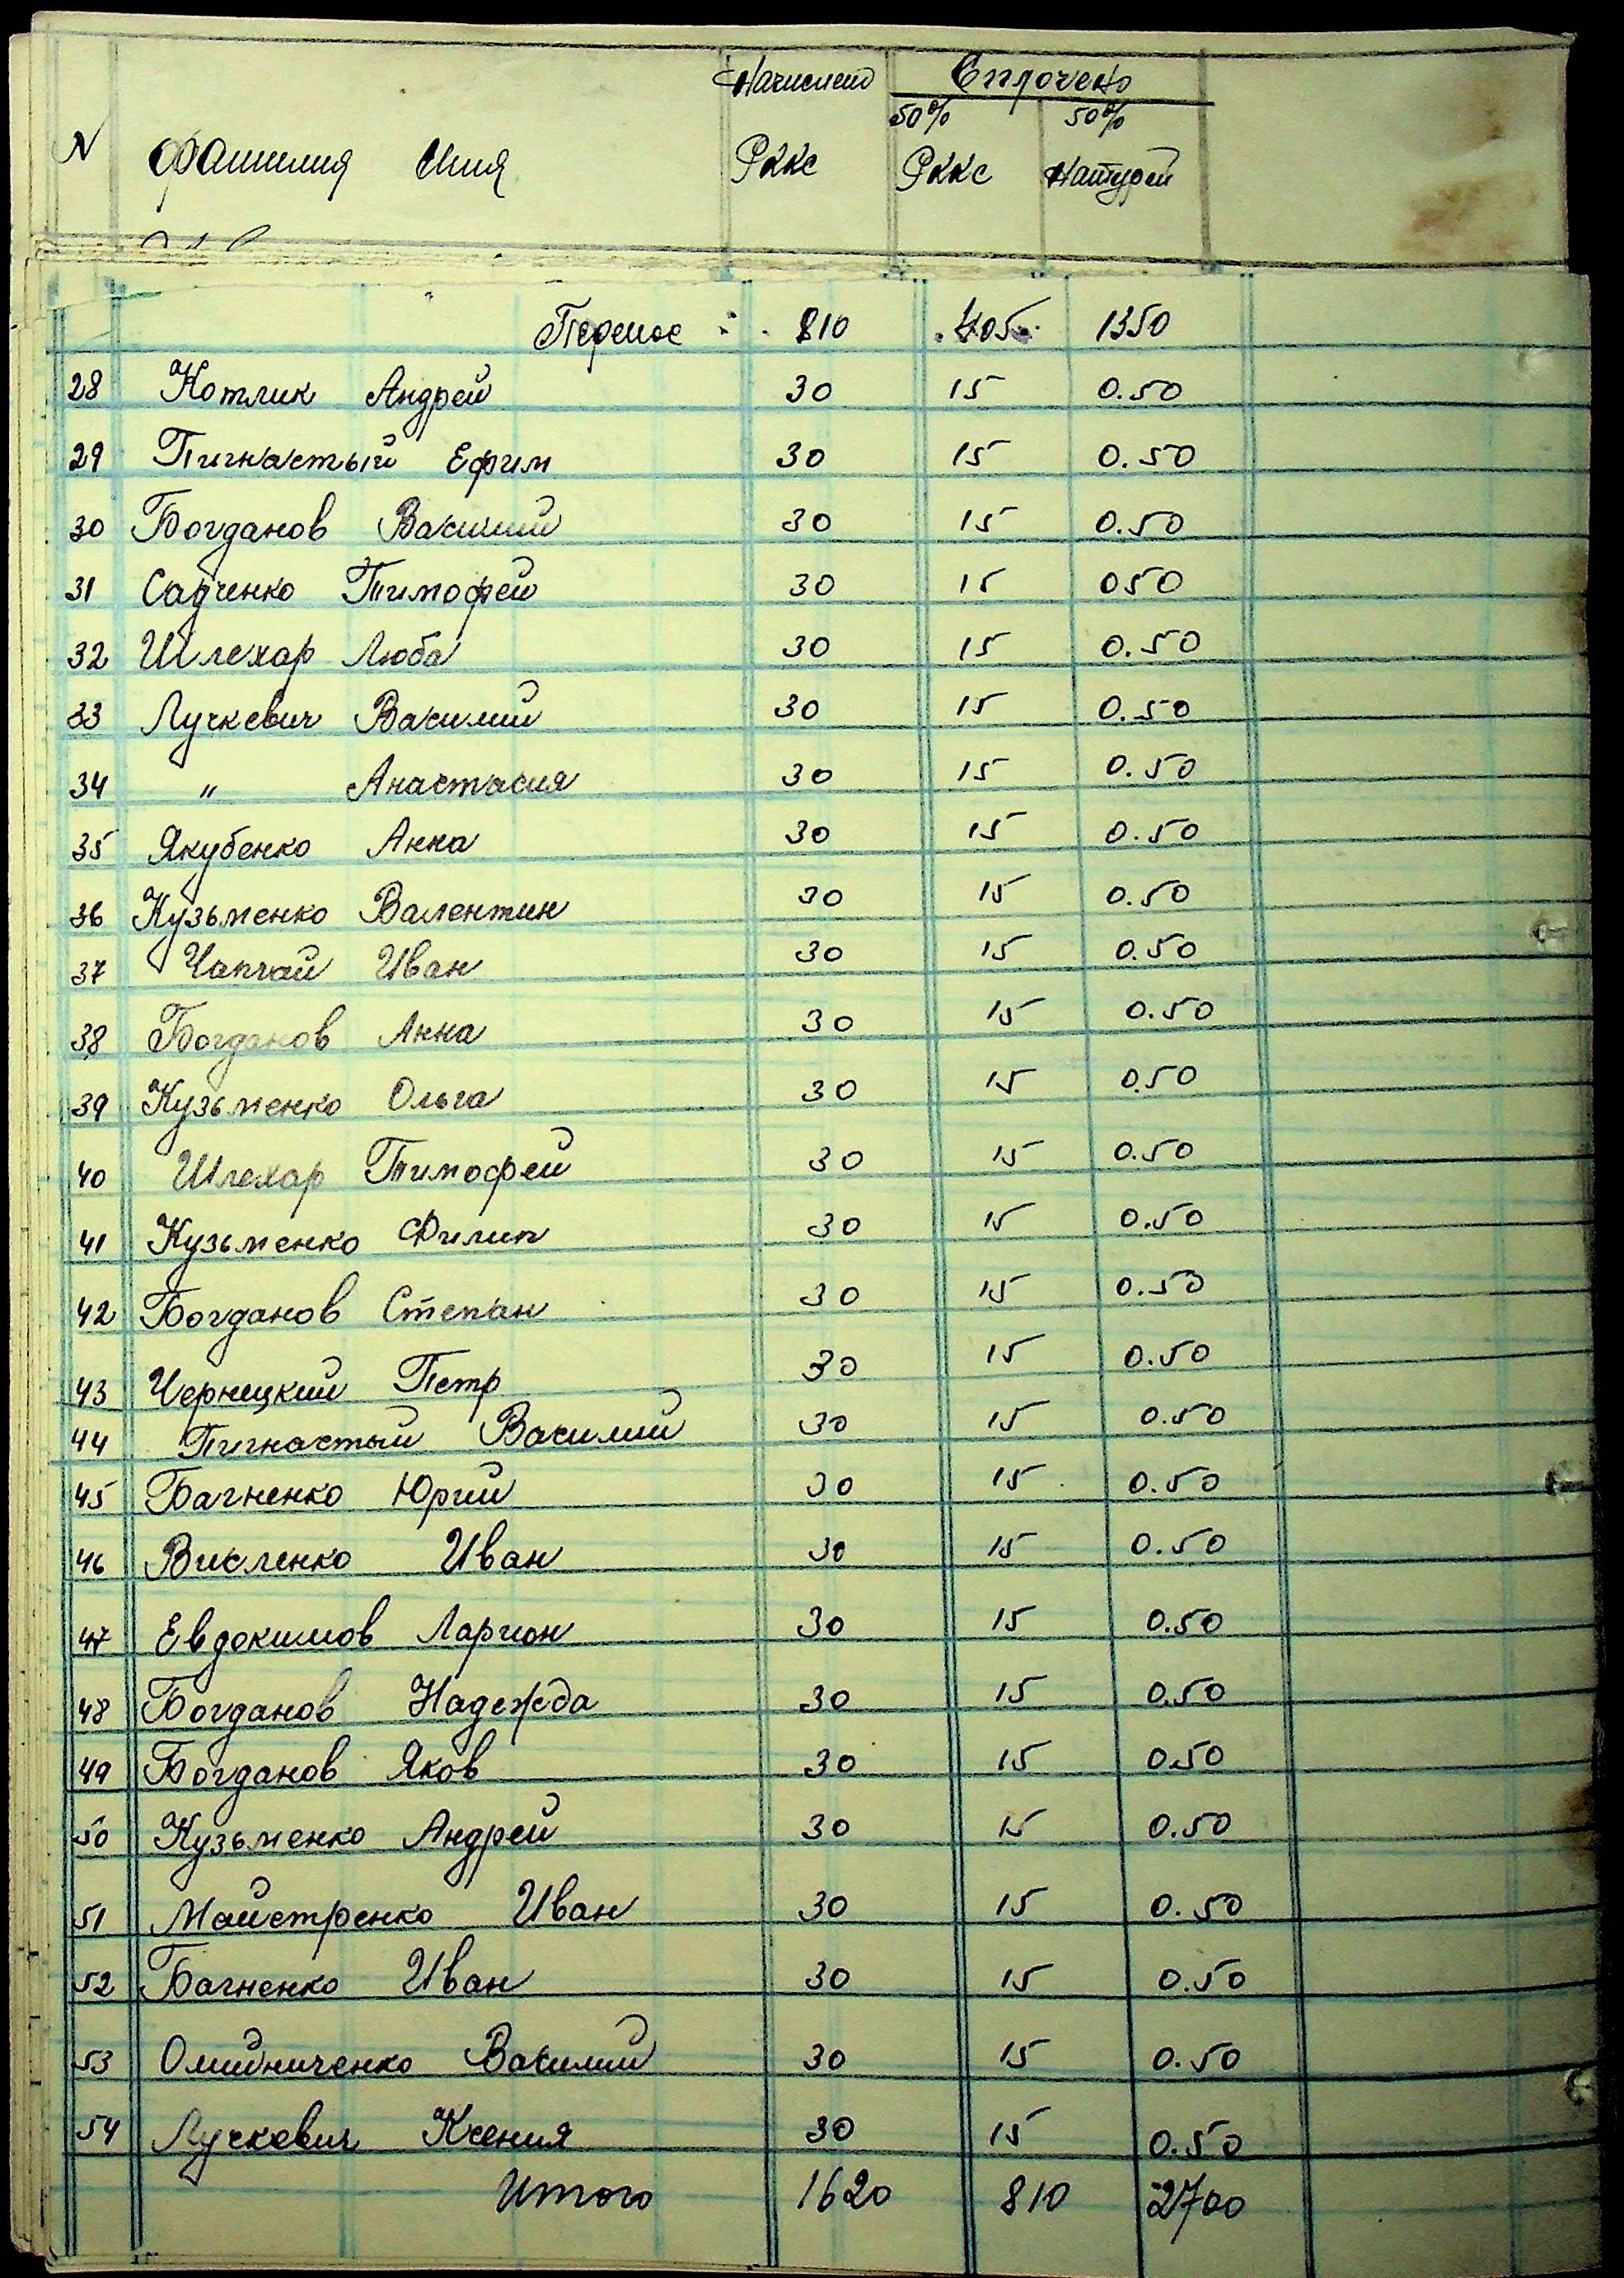 Начислено Сплочено
50% 50%
N Фамилия Имя Рккс Рккс Натурой
Перенос 810 405 1350
28 Котлик Андрей 30 15 0.50
29 Пигнастый Ефим 30 15 0.50
30 Богданов Василий 30 15 0.50
31 Садченко Тимофей 30 15 050
32 Шлехар Люба 30 15 0.50
33 Лучкевич Василий 30 15 0.50
34 " Анастасия 30 15 0.50
35 Якубенко Анна 30 15 0.50
36 Кузьменко Валентин 30 15 0.50
37 Чапчай Иван 30 15 0.50
38 Богданов Анна 30 15 0.50
39 Кузьменко Ольга 30 15 0.50
40 Шлехар Тимофей 30 15 0.50
41 Кузьменко Филип 30 15 0.50
42 Богданов Степан 30 15 0.50
43 Черницкий Петр 30 15 0.50
44 Пигнастый Василий 30 15 0.50
45 Багненко Юрий 30 15 0.50
46 Висленко Иван 30 15 0.50
47 Евдокимов Ларион 30 15 0.50
48 Богданов Надежда 30 15 0.50
49 Богданов Яков 30 15 0.50
50 Кузьменко Андрей 30 15 0.50
51 Майстренко Иван 30 15 0.50
52 Багненко Иван 30 15 0.50
53 Олийниченко Василий 30 15 0.50
54 Лучкевич Ксения 30 15 0.50
Итого 1620 810 2700